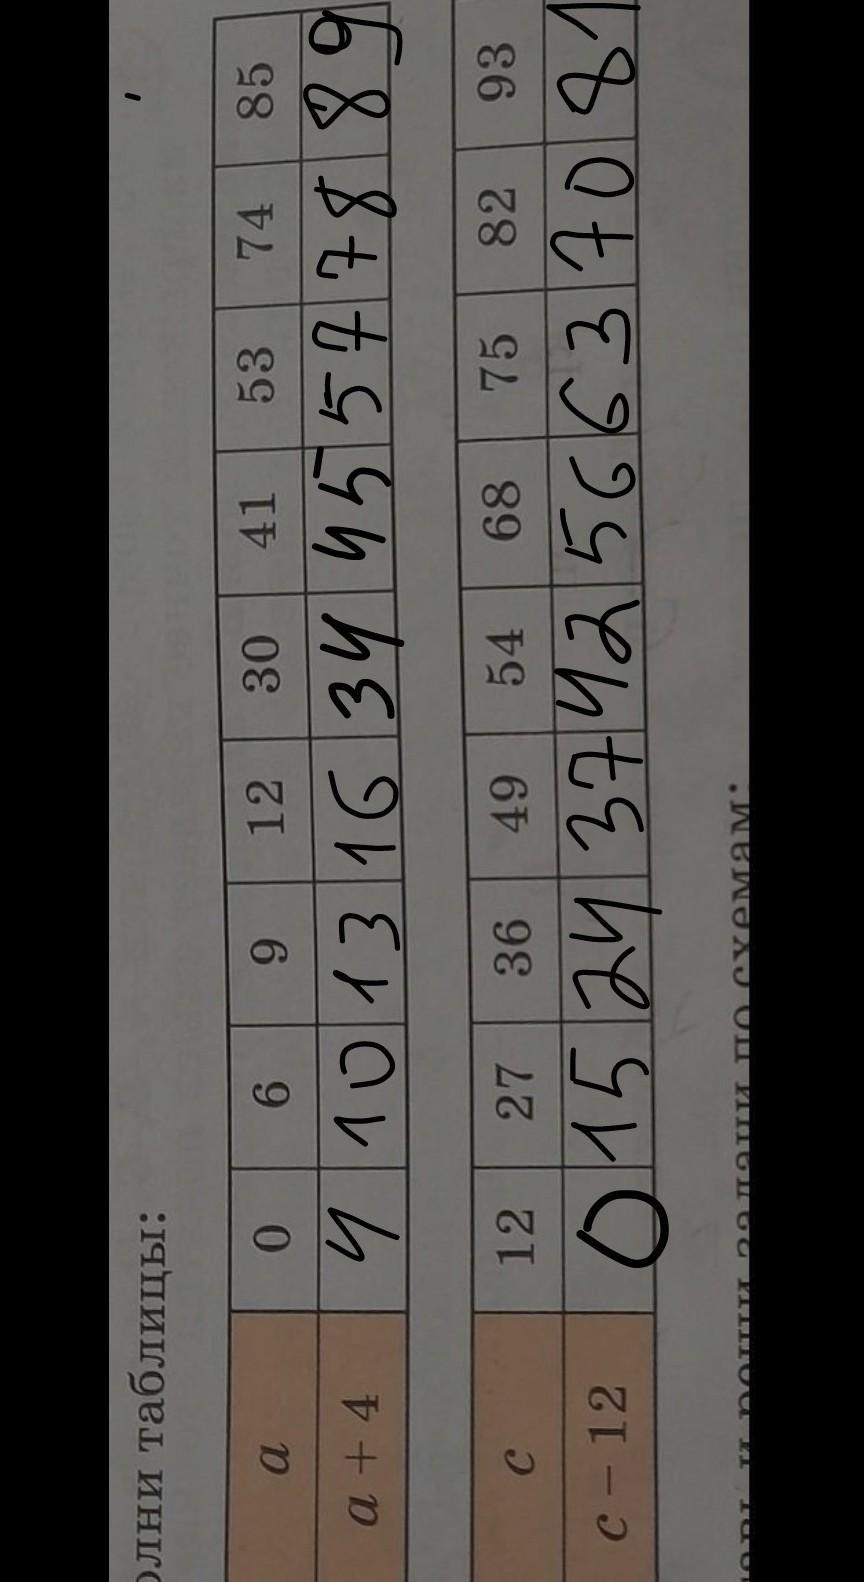 олни таблицы:
a 0 6 9 12 30 41 53 74 85
a + 4 4 10 13 16 34 45 57 78 89
c 12 27 36 49 54 68 75 82 93
c − 12 0 15 24 37 42 56 63 70 81
и реши задачи по схемам: